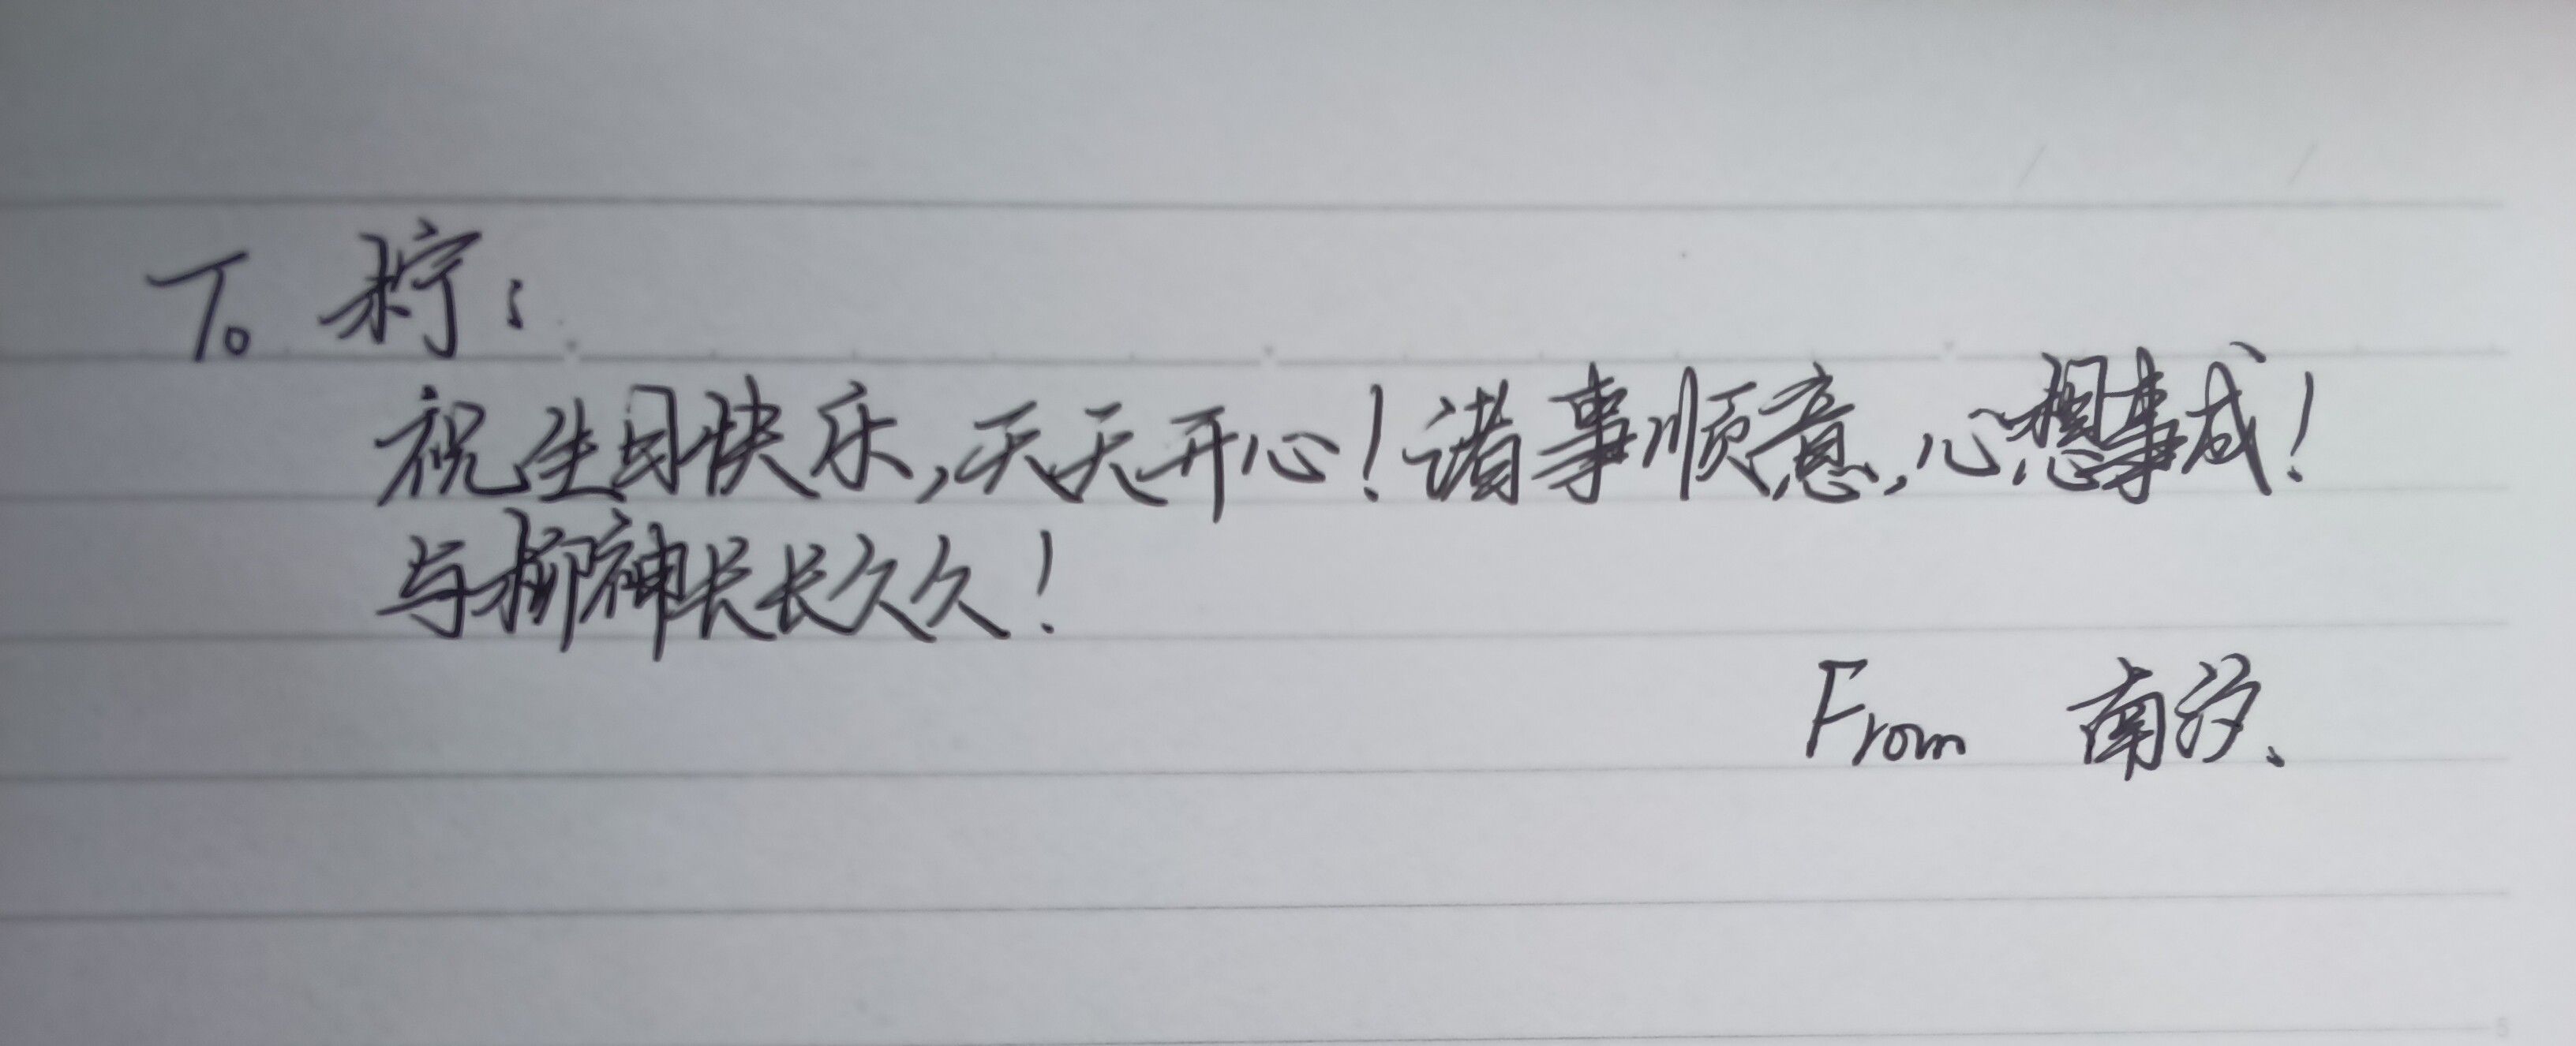 To 柠：
祝生日快乐，天天开心！诸事顺意，心想事成！
与柳神长长久久！
From 南汐、